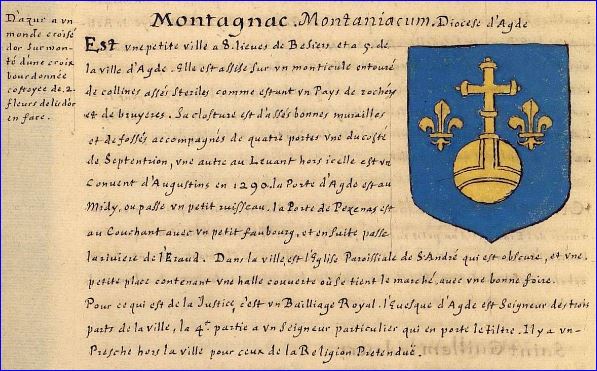 Montagnac. Montaniacum. Diocese d'Agde
D'azur a vn
monde croisé
d'or surmon-
té d'une croix
bourdonnée
costoyée de .2.
fleurs delis d'or
en face.
Est vne petite ville a 8. lieues de Besiers et a 5. de
la ville d'Agde. Elle est assise sur vn monticule entouré
de collines assés steriles comme estant vn Pays de rochers
et de bruyeres. Sa closture est d'assés bonnes murailles
et de fossés accompagnés de quatre portes vne du costé
de Septentrion, vne autre au Levant hors icelle est vn
Convent d'Augustins en 1290. la Porte d'Agde est au
Midy, ou passe vn petit ruisseau. la Porte de Pezenas est
au Couchant avec vn petit faubourg, et ensuite passe
la riviere de l'Eraud. Dans la ville, est l'Eglise Paroissiale de S. André qui est obscure, et vne
petite place contenant vne halle couverte où se tient le marché, avec vne bonne foire.
Pour ce qui est de la Justice, c'est vn Bailliage Royal. l'Euesque d'Agde est Seigneur des trois
parts de la ville, la 4e. partie a vn Seigneur particulier qui en porte le tiltre. Il y a vn
Presche hors la ville pour ceux de la Religion Pretendue.